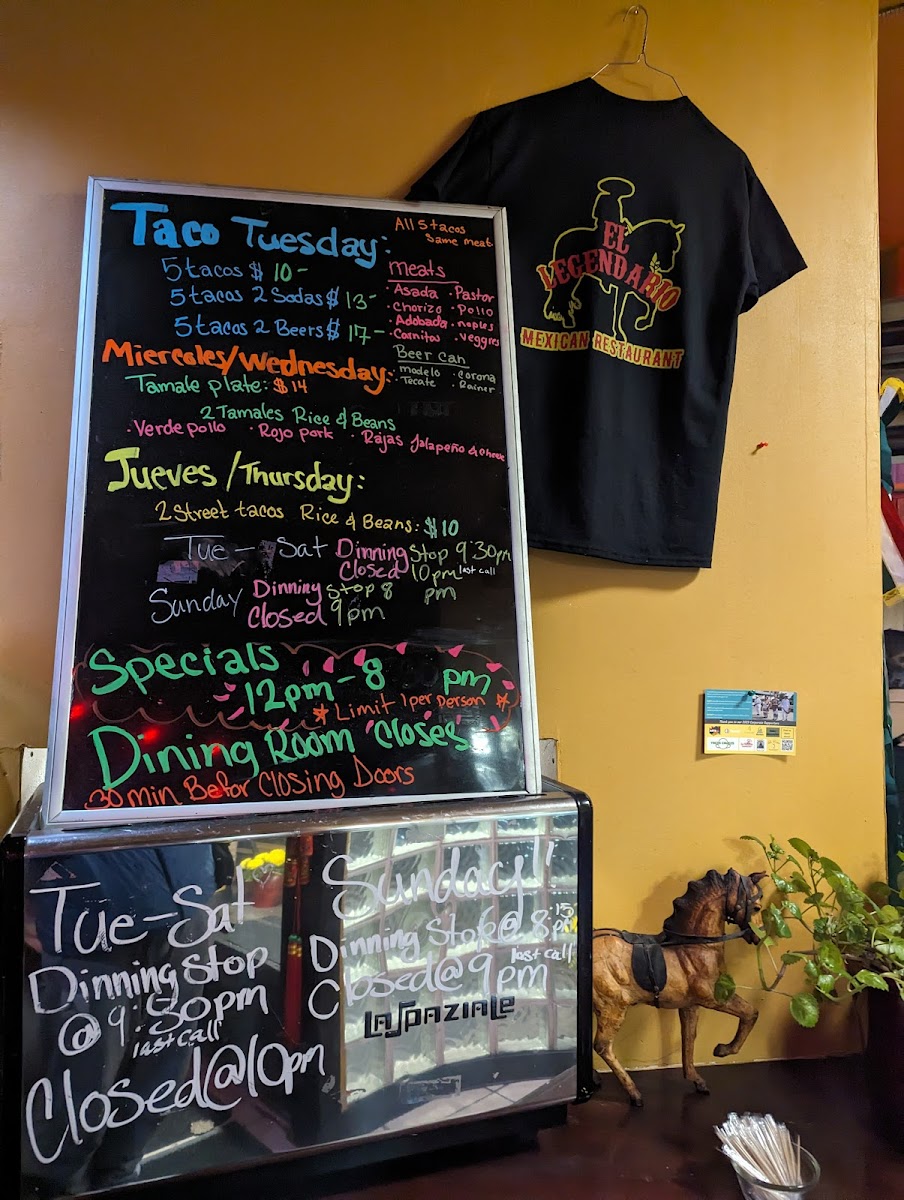 Taco Tuesday:
All 5 tacos
Same meat
5 tacos $ 10-
5 tacos 2 Sodas $ 13-
5 tacos 2 Beers $ 17-
meats
• Asada • Pastor
• Chorizo • Pollo
• Adobada • noples
• Carnitas • veggies
Beer can
modelo • Corona
Tecate • Rainer
Miercoles/Wednesday:
Tamale plate: $14
2 Tamales Rice & Beans
• Verde pollo • Rojo pork • Rajas Jalapeño & Cheese
Jueves /Thursday:
2 Street tacos Rice & Beans: $10
Tue - Sat Dinning Stop 9:30pm
Closed 10pm last call
Sunday Dinning Stop 8 pm
Closed 9pm
Specials
12pm - 8 pm
* Limit 1 per person *
Dining Room Closes
30 min Befor Closing Doors
Tue-Sat
Dinning Stop
@ 9:30pm
last call
Closed@10pm
Sunday!!
Dinning Stop@ 8:15 pm
last call
Closed@9pm
LASPAZIALE
EL
LEGENDARIO
MEXICAN RESTAURANT